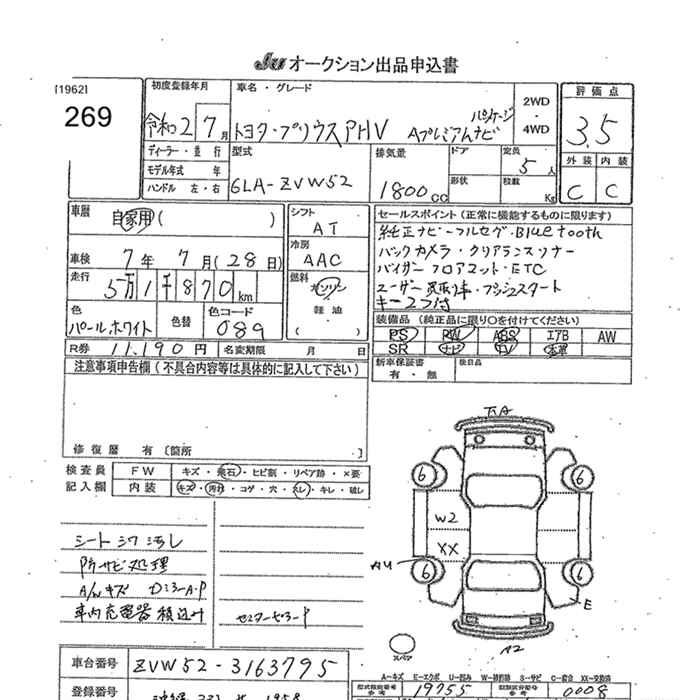 Ju オークション出品申込書
[1962]
269
初度登録年月
令和2年7月
車名・グレード
トヨタ・プリウスPHV Aプレミアムナビパッケージ
2WD
・
4WD
評価点
3.5
外装 内装
C C
ディーラー・並行
モデル年式 年
ハンドル 左・右
型式
6LA-ZVW52
排気量
1800cc
ドア
形状
定員
5人
積載
Kg
車歴
自家用( )
車検 7年 7月(28日)
走行
5万1千870km
色
パールホワイト
色替
色コード
089
R券 11,190円 名変期限 月 日
シフト
AT
冷房
AAC
燃料
ガソリン
軽油
( )
セールスポイント(正常に機能するものに限ります)
純正ナビ・フルセグ・Bluetooth
バックカメラ・クリアランスソナー
バイザー フロアマット・ETC
ユーザー買取車・プッシュスタート
キー2コ付
装備品(純正品に限り○を付けてください)
PS PW ABS エアB AW
SR ナビ TV 本革
新車保証書
有・無
後日品
注意事項申告欄(不具合内容等は具体的に記入して下さい)
修復歴 有〔箇所 〕
検査員
記入欄
FW キズ・飛石・ヒビ割・リペア跡・×要
内装 キズ・汚れ・コゲ・穴・スレ・キレ・破レ
シート シワ 汚レ
防サビ処理
A/Wキズ DミラーA・P
車内充電器積込み
センターピラーP
下A
6
6
W2
XX
AU
6
6
E
A2
スペア
A-キズ E-エクボ U-凹み W-補修跡 S-サビ C-腐食 XX-交換済
車台番号 ZVW52-3163795
登録番号
型式指定番号 19755
類別区分番号 0008